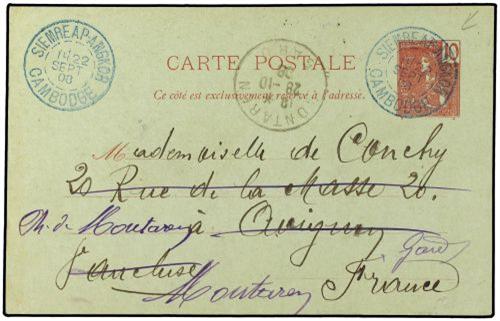 SIEMREAP-ANGKOR
22
SEPT
08
CAMBODGE
CARTE POSTALE
Ce côté est exclusivement réservé à l'adresse.
10
SIEMREAP-ANGKOR
CAMBODGE
28 -10
Mademoiselle de Conchy
20 Rue de la Masse 20.
Ch. de Montaren à Avignon
Vaucluse Gard
Montaren France